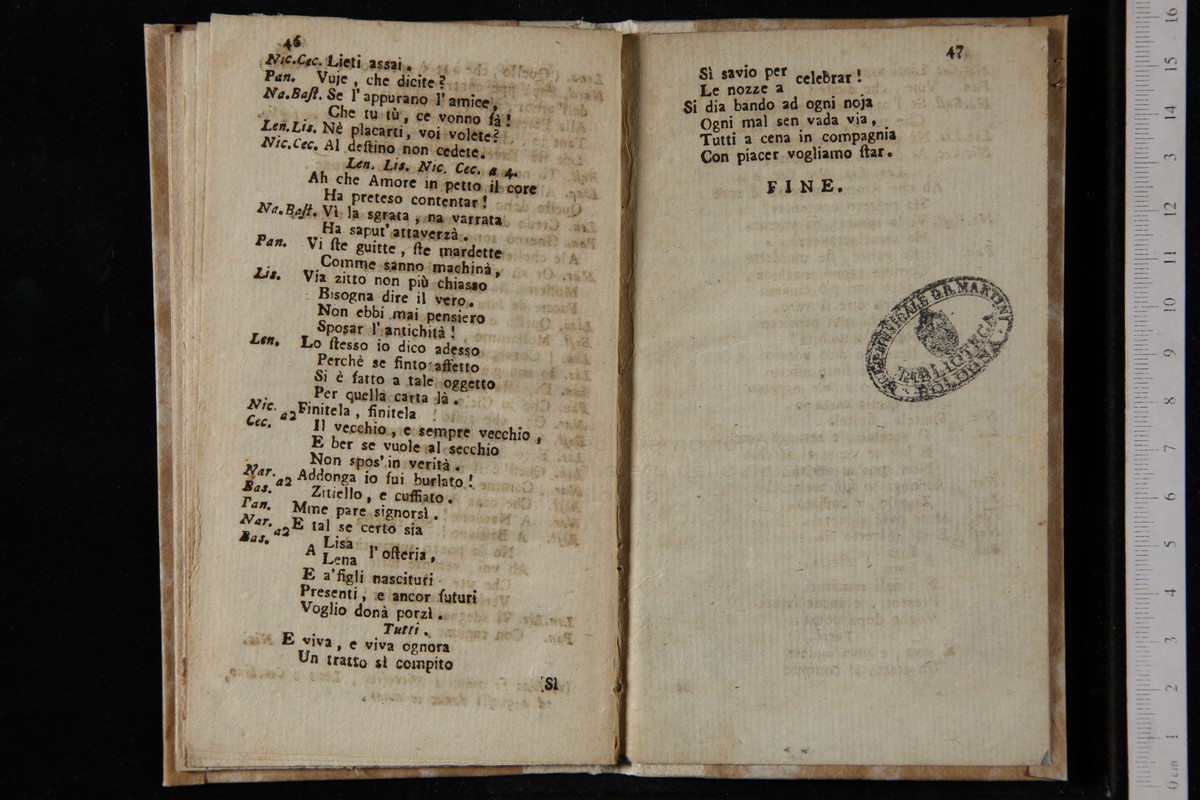 46
Nic.Cec. Lieti assai.
Pan. Vuje, che dicite?
Na.Baſt. Se l'appurano l'amice,
Che tu tù, ce vonno fà!
Len.Lis. Nè placarti, voi volete?
Nic.Cec. Al deſtino non cedete.
Len. Lis. Nic. Cec. a 4.
Ah che Amore in petto il core
Ha preteso contentar!
Na.Baſt. Vì la sgrata, na varrata
Ha saput' attaverzà.
Pan. Vi ſte guitte, ſte mardette
Comme sanno machinà,
Lis. Via zitto non più chiasso
Bisogna dire il vero.
Non ebbi mai pensiero
Sposar l'antichità!
Len. Lo ſtesso io dico adesso
Perchè se finto affetto
Si è fatto a tale oggetto
Per quella carta là.
Nic. Cec. a2 Finitela, finitela
Il vecchio, e sempre vecchio,
E ber se vuole al secchio
Non spos' in verità.
Nar. Bas. a2 Addonga io fui burlato!
Zitiello, e cuffiato.
Pan. Mme pare signorsì.
Nar. Bas. a2 E tal se certo sia
A Lisa Lena l'oſteria,
E a'figli nascituri
Presenti, e ancor futuri
Voglio donà porzì.
Tutti.
E viva, e viva ognora
Un tratto sì compito
Sì
47
Sì savio per celebrar!
Le nozze a
Si dia bando ad ogni noja
Ogni mal sen vada via,
Tutti a cena in compagnia
Con piacer vogliamo ſtar.
FINE.
MUSICALE G.B. MARTINI
BIBLIOTECA
BOLOGNA